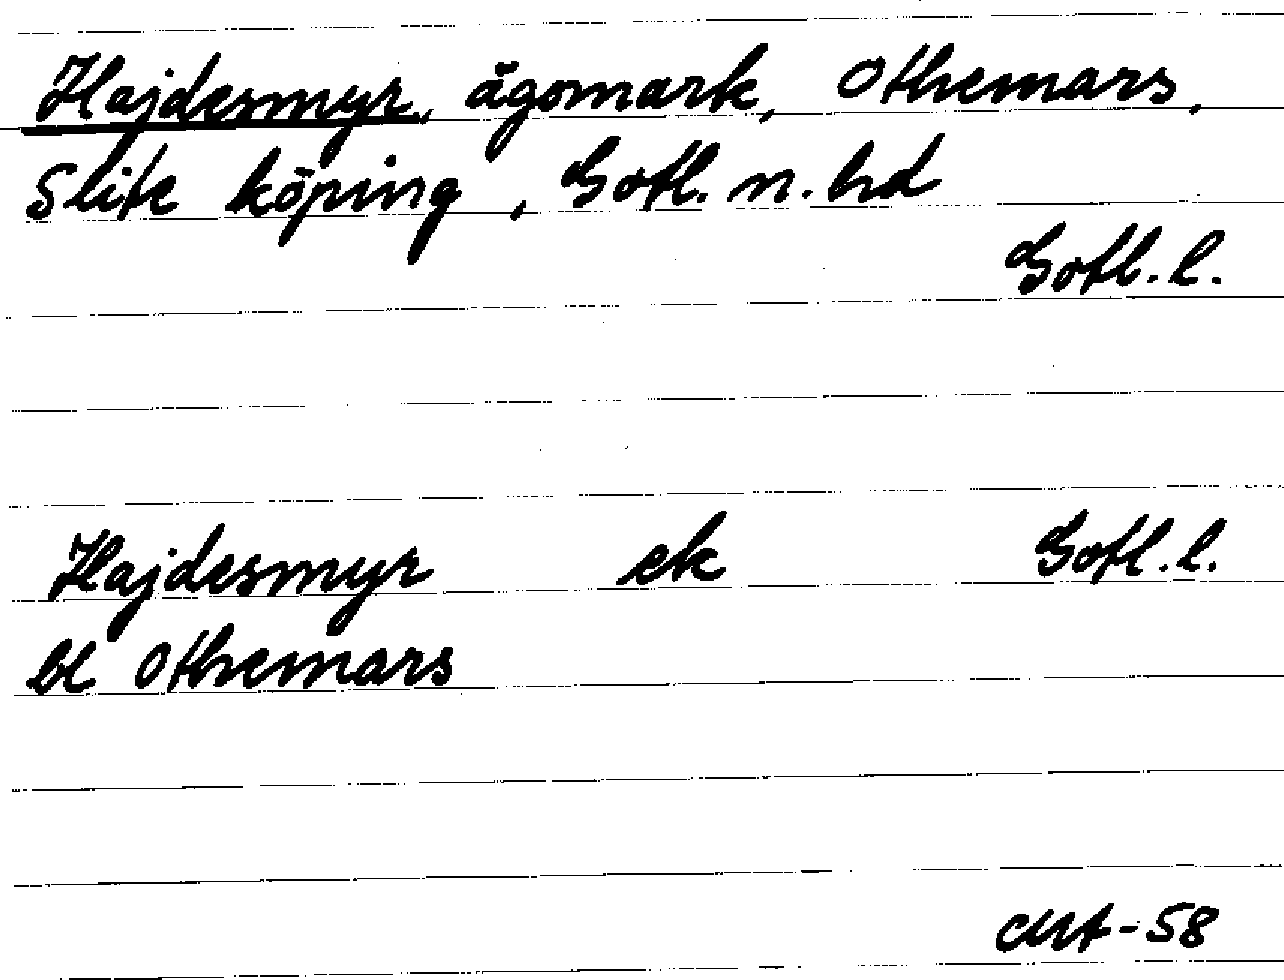 Hajdesmyr, ägomark, Othemars,
Slite köping, Gotl. n. hd
Gotl. l.
Hajdesmyr ek Gotl. l.
bl Othemars
-58